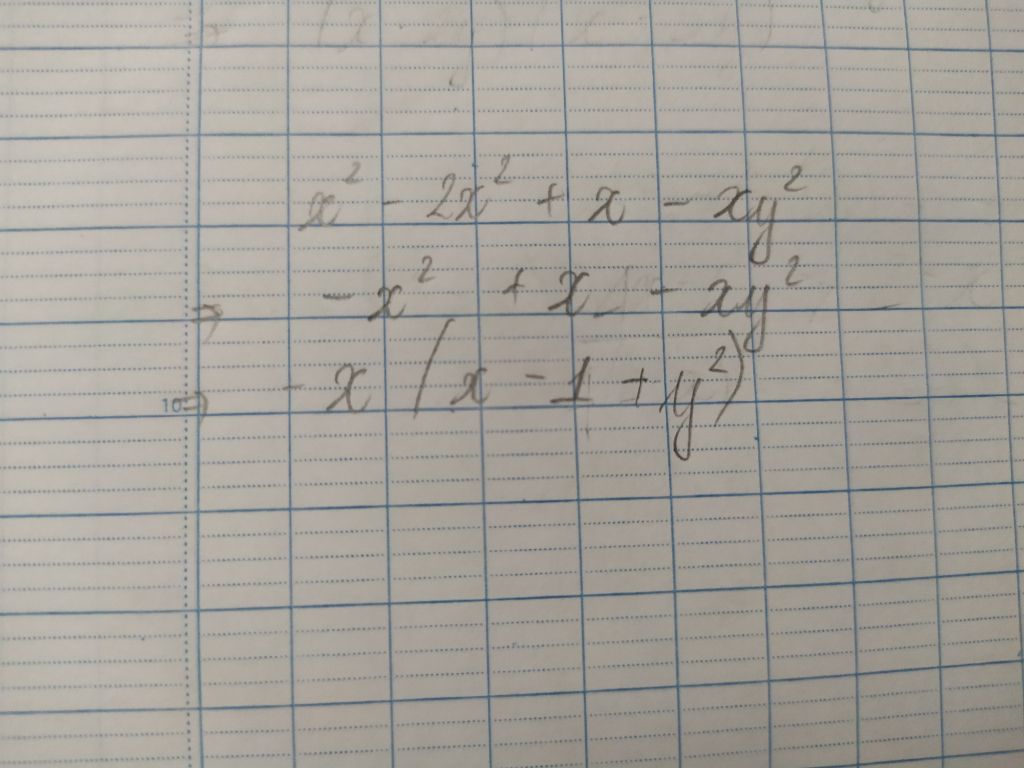 x² - 2x² + x - xy²
⇒ -x² + x - xy²
10 ⇒ -x (x - 1 + y²)